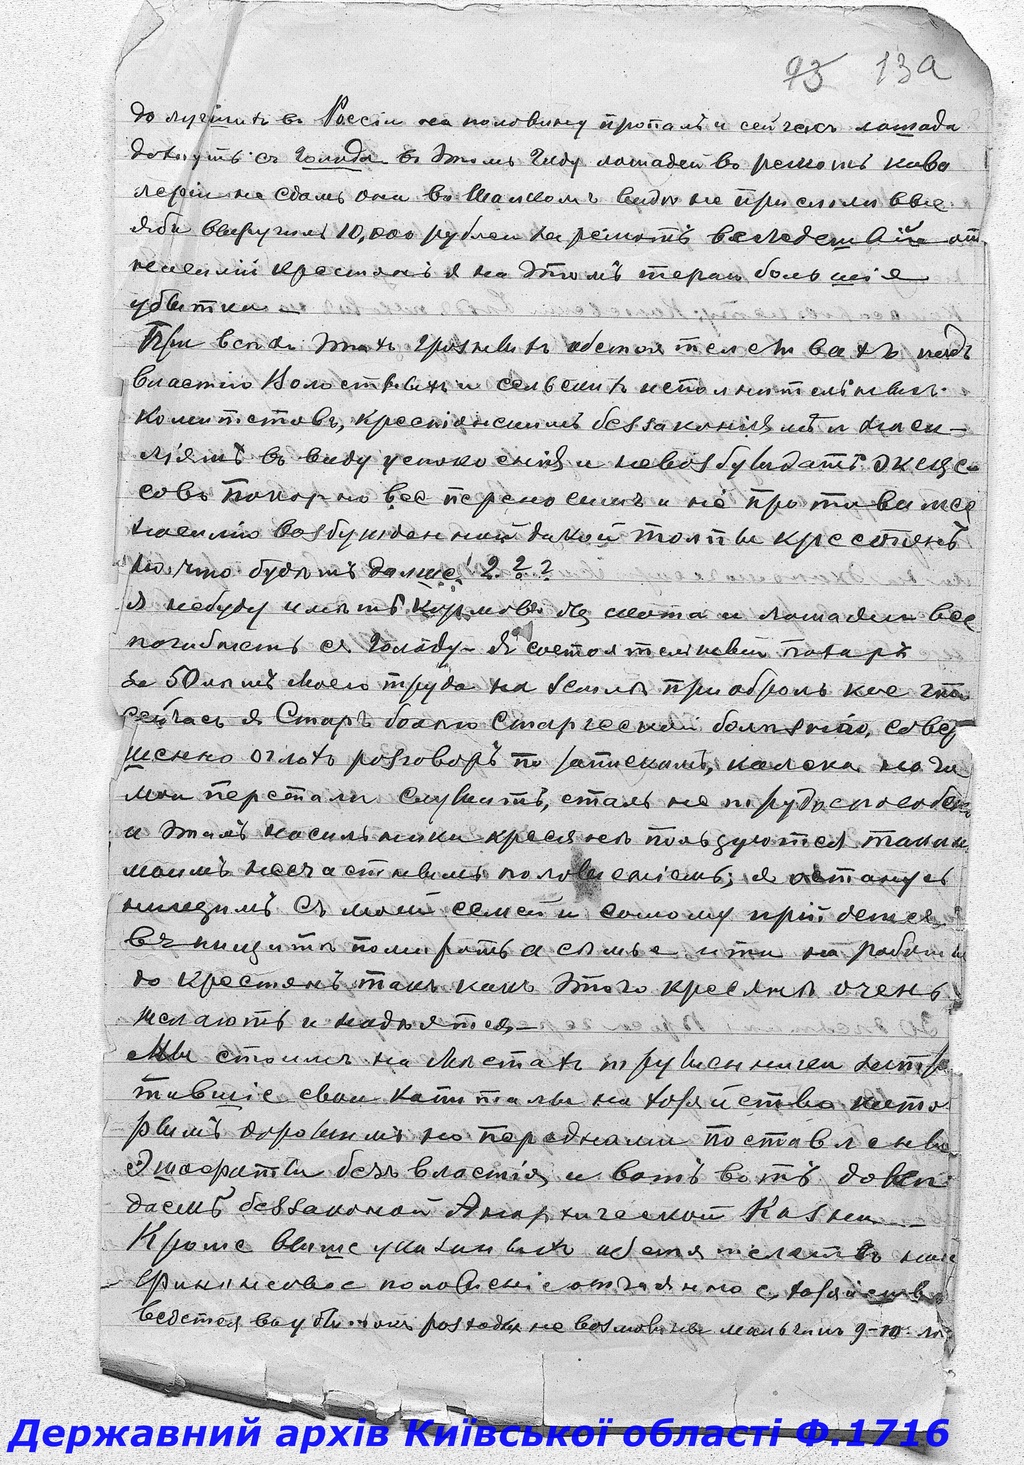 93 13а
до лучших в Россіи на половину пропали и сейчас лошада
дохнуть съ голода в этомъ году лошадей во ремотъ кова
леріи не сдамъ они во такомъ виду не прислоли все
я бы выручилъ 10,000 рублей за ремотъ вследствіи от
ношеній крестянъ я на этомъ теряю большія
убытки
При всехъ этихъ грозныхъ обстоятелствахъ подъ
властію Волостныхъ и сельскихъ исполнителнихъ
комитетовъ, крестянскимъ беззаконіямъ и наси
ліямъ въ виду успокоенія и невозбуждать эксце
совъ покорно все переносимъ и не противимся
насилію возбужденной дикой толпы крестянъ
но что будетъ далше! ? ? ?
я небуду иметь кормовъ для скота и лошадей все
погибнетъ съ голоду. Я состоятелный пахаръ
за 50 летъ моего труда на земле приобролъ кое что
сейчасъ я Старъ болею старческой болезнію, совер
шенно оглохъ розговоръ по запискамъ, калека ноги
мои перестали служить, сталъ не трудоспособенъ
и этимъ насильники кресяне ползуются такимъ
моимъ несчастнимъ положеніемъ; я останусь
нищимъ съ моей семей и самому прійдется
въ нищите помирать а семье ити на работы
до крестянъ такъ какъ этого кресяне очень
желаютъ и надеятся
Мы стоимъ на местахъ труженики затра
тившіе свои капиталы на хозяйство кото
рымъ дорожимъ но передками поставлены
Эшафоты безъ властія и вотъ вотъ дожи
даемъ беззаконой Анархической Казни
Кроме више указаныхъ обстоятелствъ наше
финансовое положеніе отчаянное, хозяйство
ведется въ убытокъ розходы не возможны мальчикъ 9-10 ле
Державний архів Київської області Ф.1716